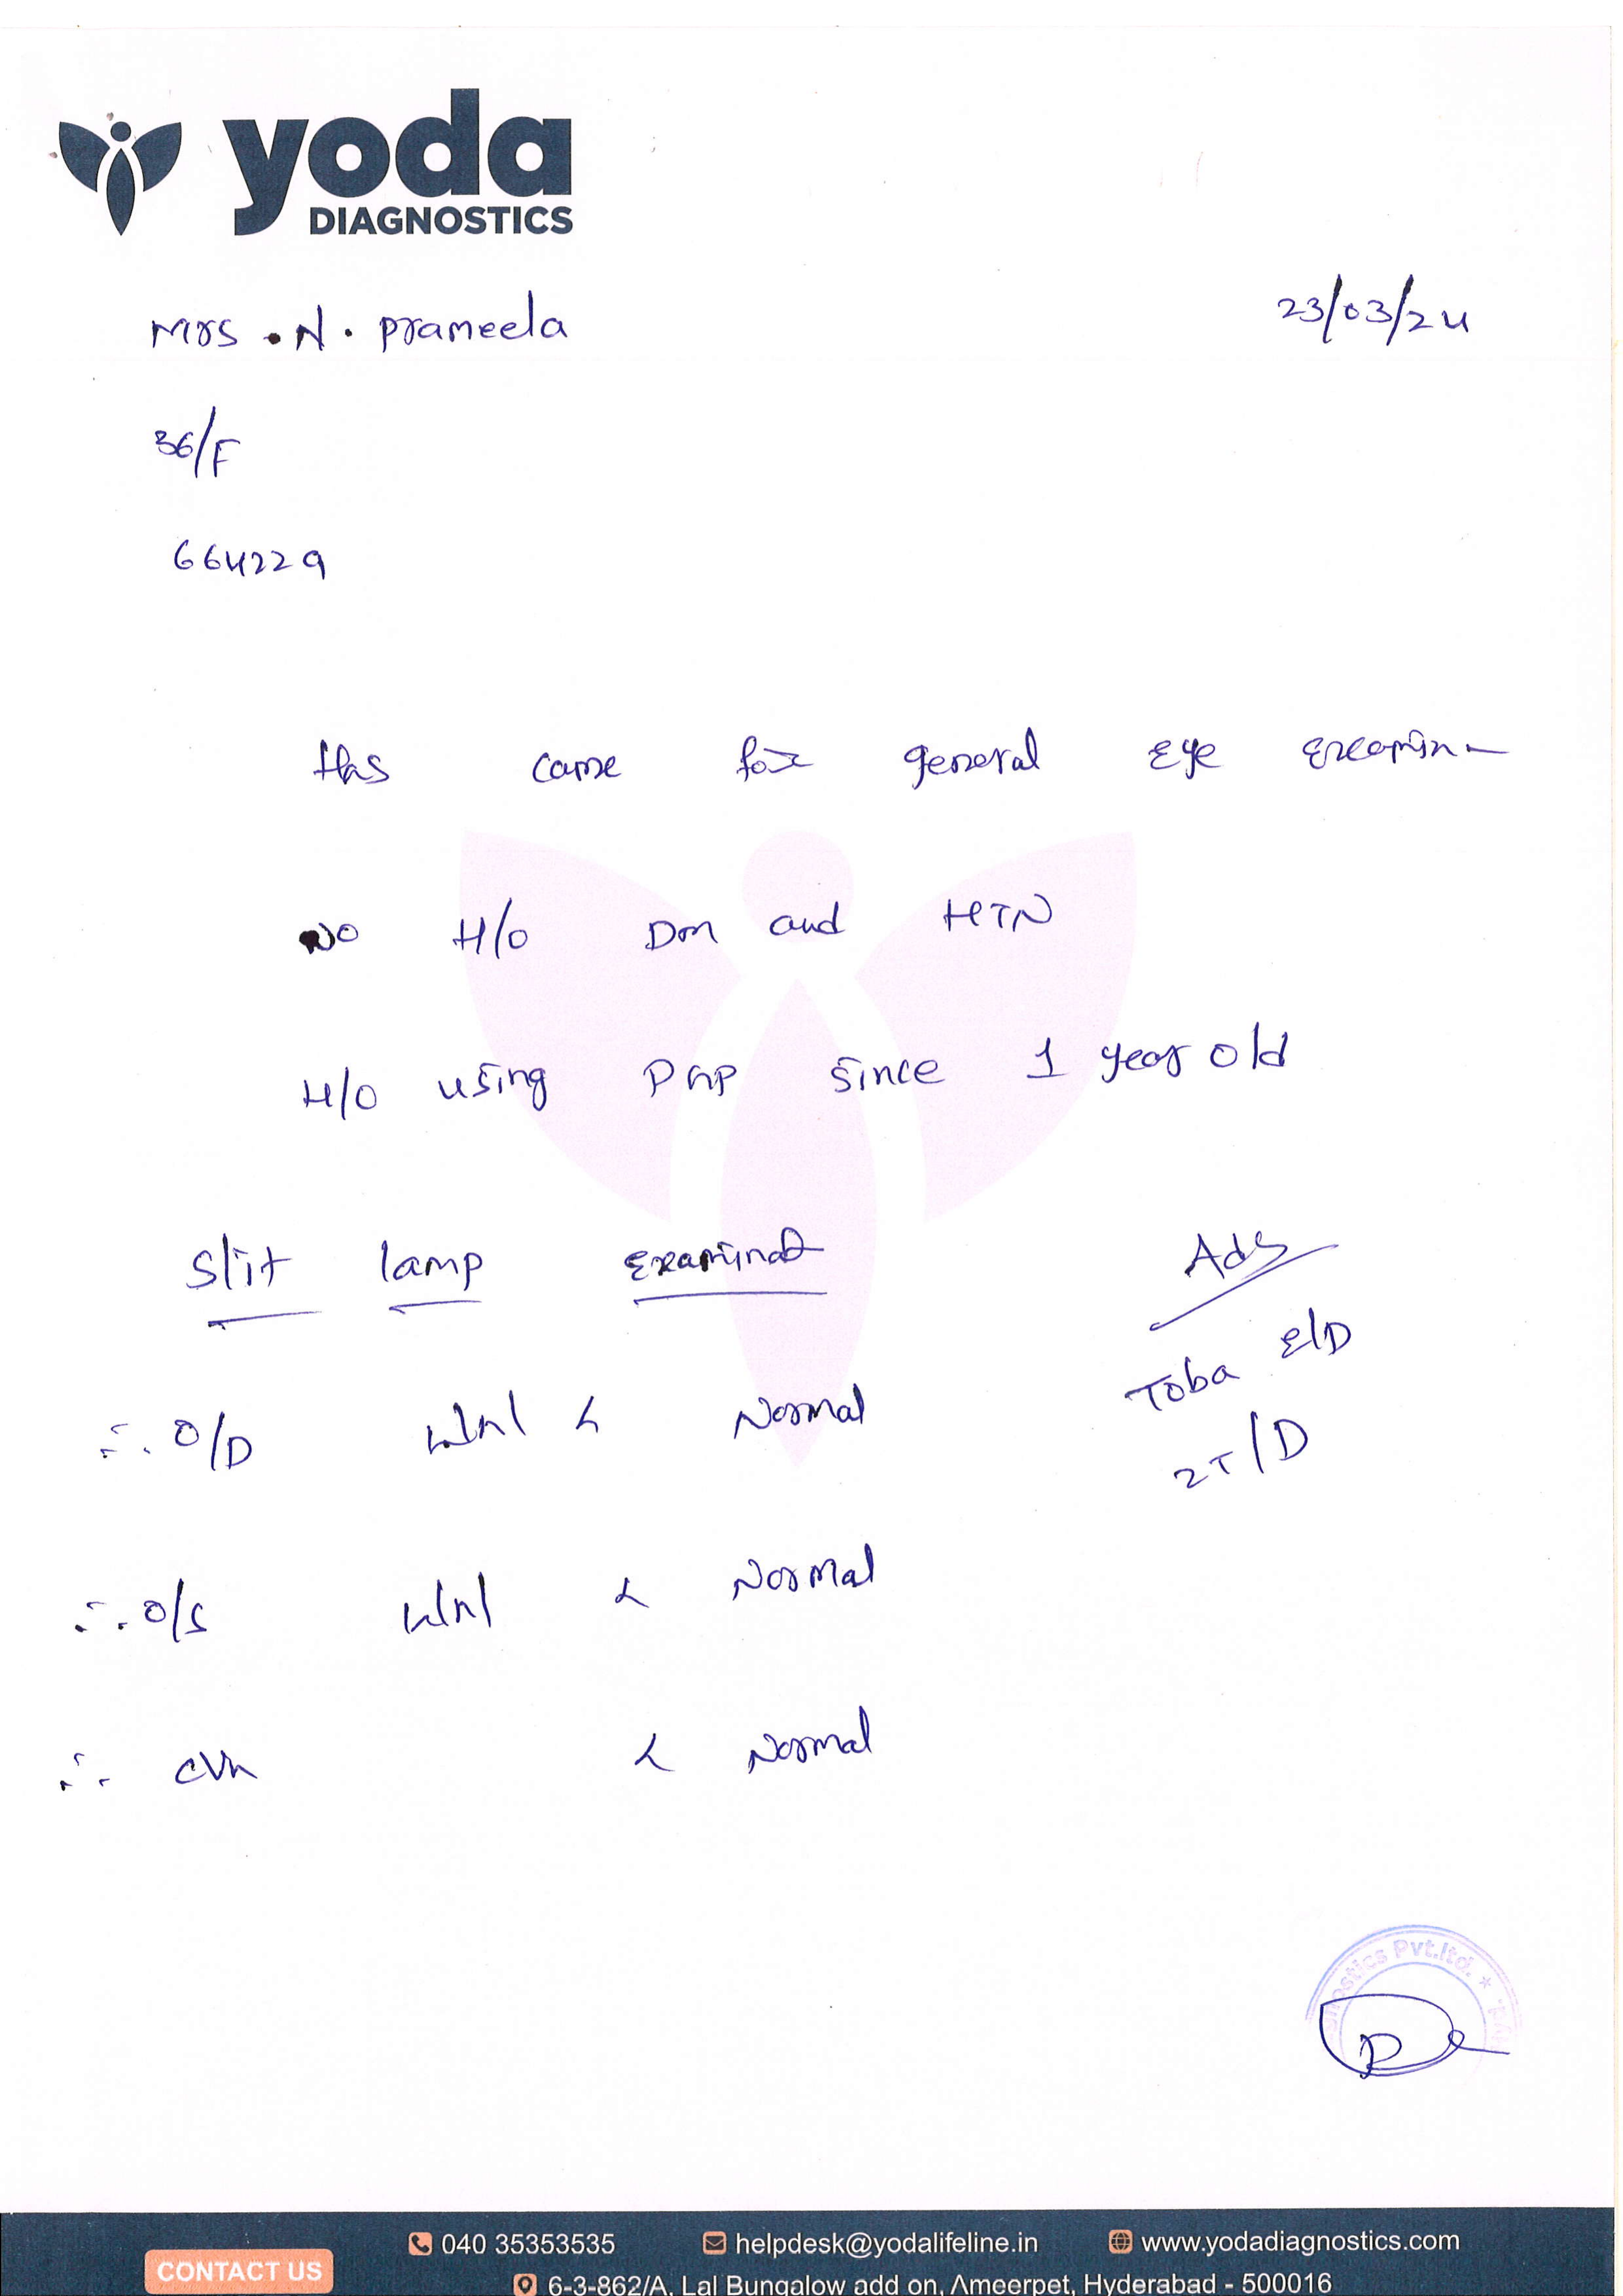 yoda
DIAGNOSTICS
Mrs . N . Prameela
23/03/24
36/F
664229
Has came for general Eye Examin
No H/o Dm and HTN
H/o using PGP since 1 year old
Slit lamp Examinat
Adv
Toba E/D
2T/D
∴ O/D WNL < Normal
∴ O/S WNL < Normal
∴ CVN < Normal
gnostics Pvt.ltd. *
CONTACT US
040 35353535
helpdesk@yodalifeline.in
www.yodadiagnostics.com
6-3-862/A, Lal Bungalow add on, Ameerpet, Hyderabad - 500016